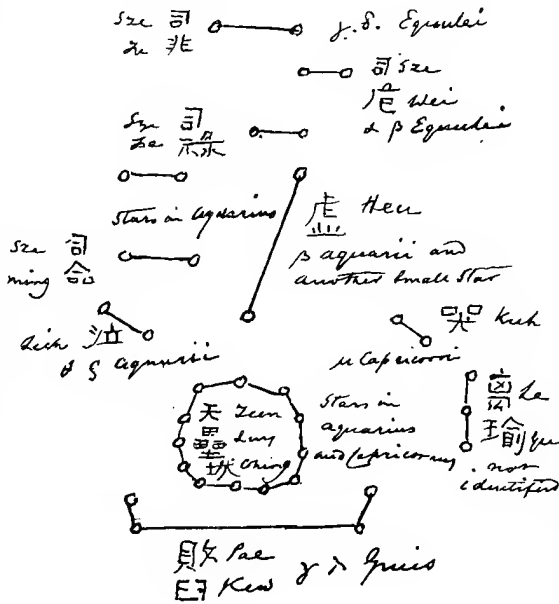 Sze 司
γ. δ. Equulei
非
司 Sze
危 Wei
α β Equulei
司
祿
Stars in Aquarius
虛 Heu
β aquarii and
another small star
Sze 司
ming 命
泣
Aquarii
哭 Kuh
μ Capricorni
天
壘 Luy
城 Ching
Stars in
aquarius
and Capricornus
離 Le
瑜 Yu
not
identified
敗 Pae
臼 Kew
γ λ Gruis